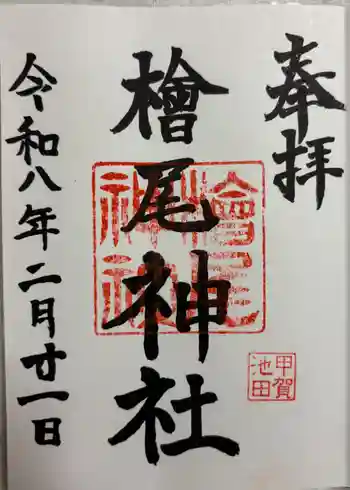 奉拝
檜尾神社
令和八年二月廿一日
檜尾神社
甲賀
池田